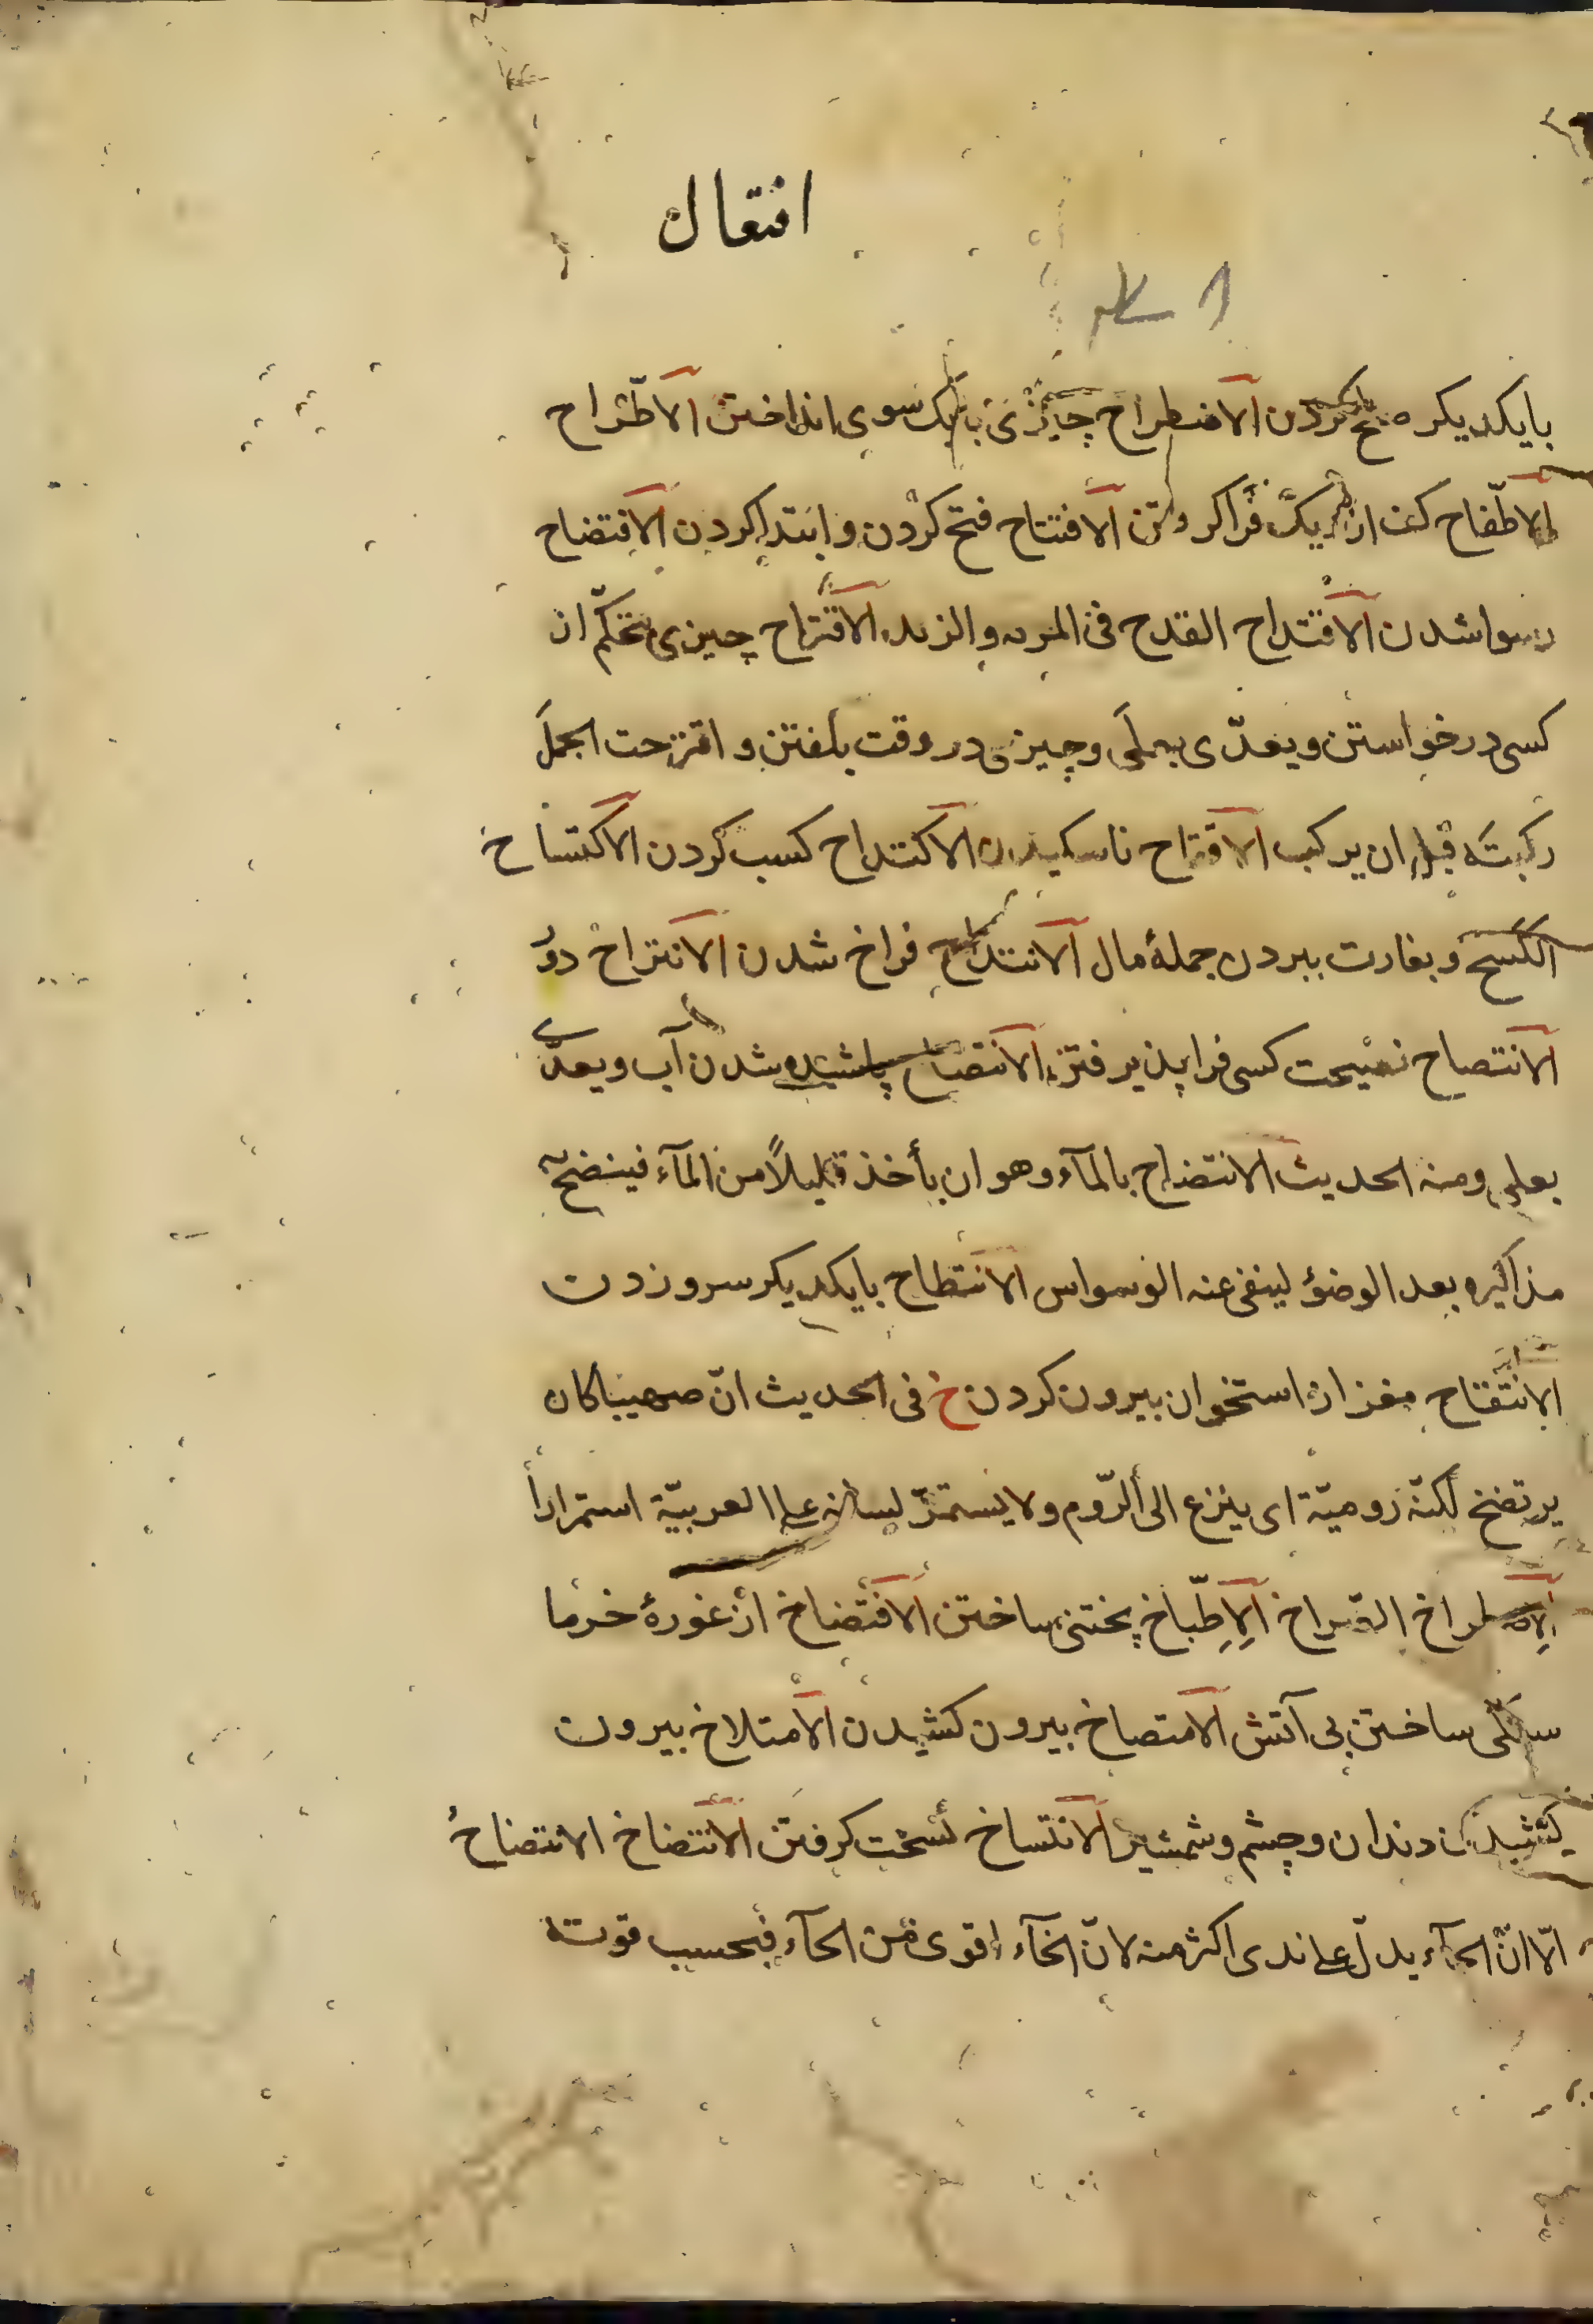 افتعال
بایکدیکر صلح کردن الاضطراح چیزی بایک سوی انداختن الاطّراح
الاطّفاح کف از دیک فرا کرفتن الافتتاح فتح کردن و ابتدا کردن الافتضاح
رسوا شدن الاقتداح القدح فی المرق والزند الاقتراح چیزی بتحکّم از
کسی درخواستن ویعدّی بعلی وچیزی در وقت بکفتن و اقترحت الجملَ
رکبتَه قبل ان یرکب الاقتماح الاکتداح کسب کردن الاکتساح
الکسح و بغارت ببردن جملهٔ مال الانتداح فراخ شدن الانتزاح دوُ
الانتصاح نصیحت کسی فرا پذیرفتن الانتضاح پاشیده شدن آب ویعدّی
بعلی ومنه الحدیث الانتضاح بالمآء وهو ان یأخذ قلیلاً من المآء فینضح به
مذاکیره بعد الوضؤ لینفی عنه الوسواس الانتطاح بایکدیکر سرو زدن
الانتقاح مغز از استخوان بیرون کردن خ فی الحدیث انّ صهیبا کان
یرتضخ لکنة رومیّة ای ینزع الی الرّوم ولا یستمرّ لسانه علی العربیّة استمرارا
الاصطراخ الصّراخ الاِطِّباخ پختنی ساختن الافتضاخ از غورهٔ خرما
سیکی ساختن بی آتش الامتصاخ بیرون کشیدن الامتلاخ بیرون
کشیدن دندان وچشم وشمشیر الانتساخ نسخت کرفتن الانتضاخ الانتضاحُ
الّا انّ الخآء یدلّ علی ندی اکثر منه لانّ الخآء اقوی من الحآء فبحسب قوته